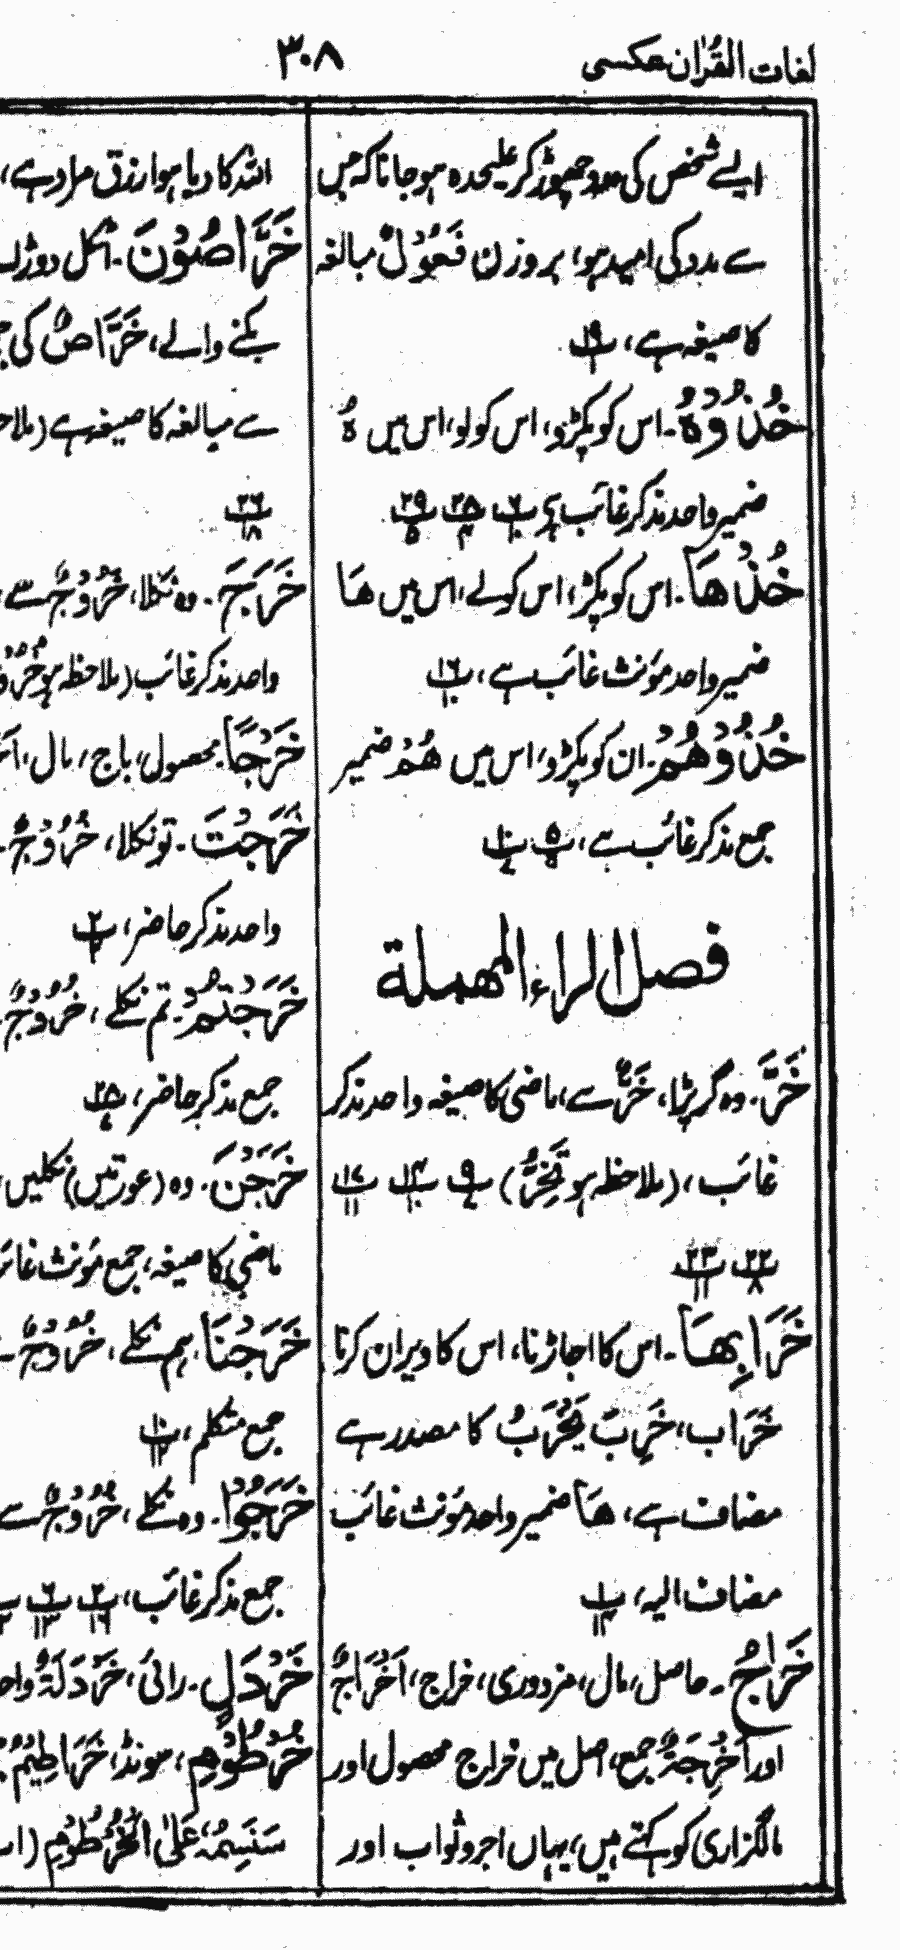 لغات القرآن عکسی
۳۰۸
ایسے شخص کی مدد چھوڑ کر علیحدہ ہو جانا کہ جس
سے مدد کی امید ہو، بروزن فَعُوْلٌ مبالغہ
کا صیغہ ہے، پ ۱۹ ۱
خُذُوْہُ۔ اس کو پکڑو، اس کو لو، اس میں ہُ
ضمیر واحد مذکر غائب ہے پ ۶ ۱۰ پ ۲۵ پ ۲۹ ۵
خُذْھَا۔ اس کو پکڑ، اس کو لے، اس میں ھَا
ضمیر واحد مؤنث غائب ہے، پ ۱۶ ۱۰
خُذُوْھُمْ۔ ان کو پکڑو، اس میں ھُمْ ضمیر
جمع مذکر غائب ہے، پ ۵ ۹ پ ۱۰ ۷
فصل الراء المهملة
خَرَّ۔ وہ گر پڑا، خَرٌّ سے، ماضی کا صیغہ واحد مذکر
غائب، (ملاحظہ ہو تَخِرُّ) پ ۹ ۷ پ ۱۴ ۱۰ پ ۱۷ ۱۱
پ ۲۲ ۸ پ ۲۳ ۱۱
خَرَابِھَا۔ اس کا اجاڑنا، اس کا ویران کرنا
خَرَاب، خَرِبَ یَخْرَبُ کا مصدر ہے
مضاف ہے، ھَا ضمیر واحد مؤنث غائب
مضاف الیہ، پ ۱ ۱۴
خَرَاجُ۔ حاصل، مال، مزدوری، خراج، اَخْرَاجٌ
اور اَخْرِجَۃٌ جمع، اصل میں خراج محصول اور
مالگزاری کو کہتے ہیں، یہاں اجر و ثواب اور
اللہ کا دیا ہوا رزق مراد ہے،
خَرَّاصُوْنَ۔ اٹکل دوڑا
بکنے والے، خَرَّاصٌ کی
سے مبالغہ کا صیغہ ہے (ملا
پ ۲۶ ۱۸
خَرَجَ۔ وہ نکلا، خُرُوْجٌ سے
واحد مذکر غائب (ملاحظہ ہو
خَرْجًا۔ محصول، باج، مال،
خَرَجْتَ۔ تو نکلا، خُرُوْجٌ
واحد مذکر حاضر، پ ۲
خَرَجْتُمْ۔ تم نکلے، خُرُوْجٌ
جمع مذکر حاضر، پ ۲۸
خَرَجْنَ۔ وہ (عورتیں) نکلیں
ماضی کا صیغہ، جمع مؤنث غائ
خَرَجْنَا۔ ہم نکلے، خُرُوْجٌ
جمع متکلم، پ ۱۰
خَرَجُوْا۔ وہ نکلے، خُرُوْجٌ سے
جمع مذکر غائب، پ ۲ ۱۶ پ ۶ ۱۳
خَرْدَلٍ۔ رائی، خَرْدَلَۃٌ واحد
خُرْطُوْمِ، سونڈ، خَرَاطِیْمُ
سَنَسِمُہٗ عَلَی الْخُرْطُوْمِ